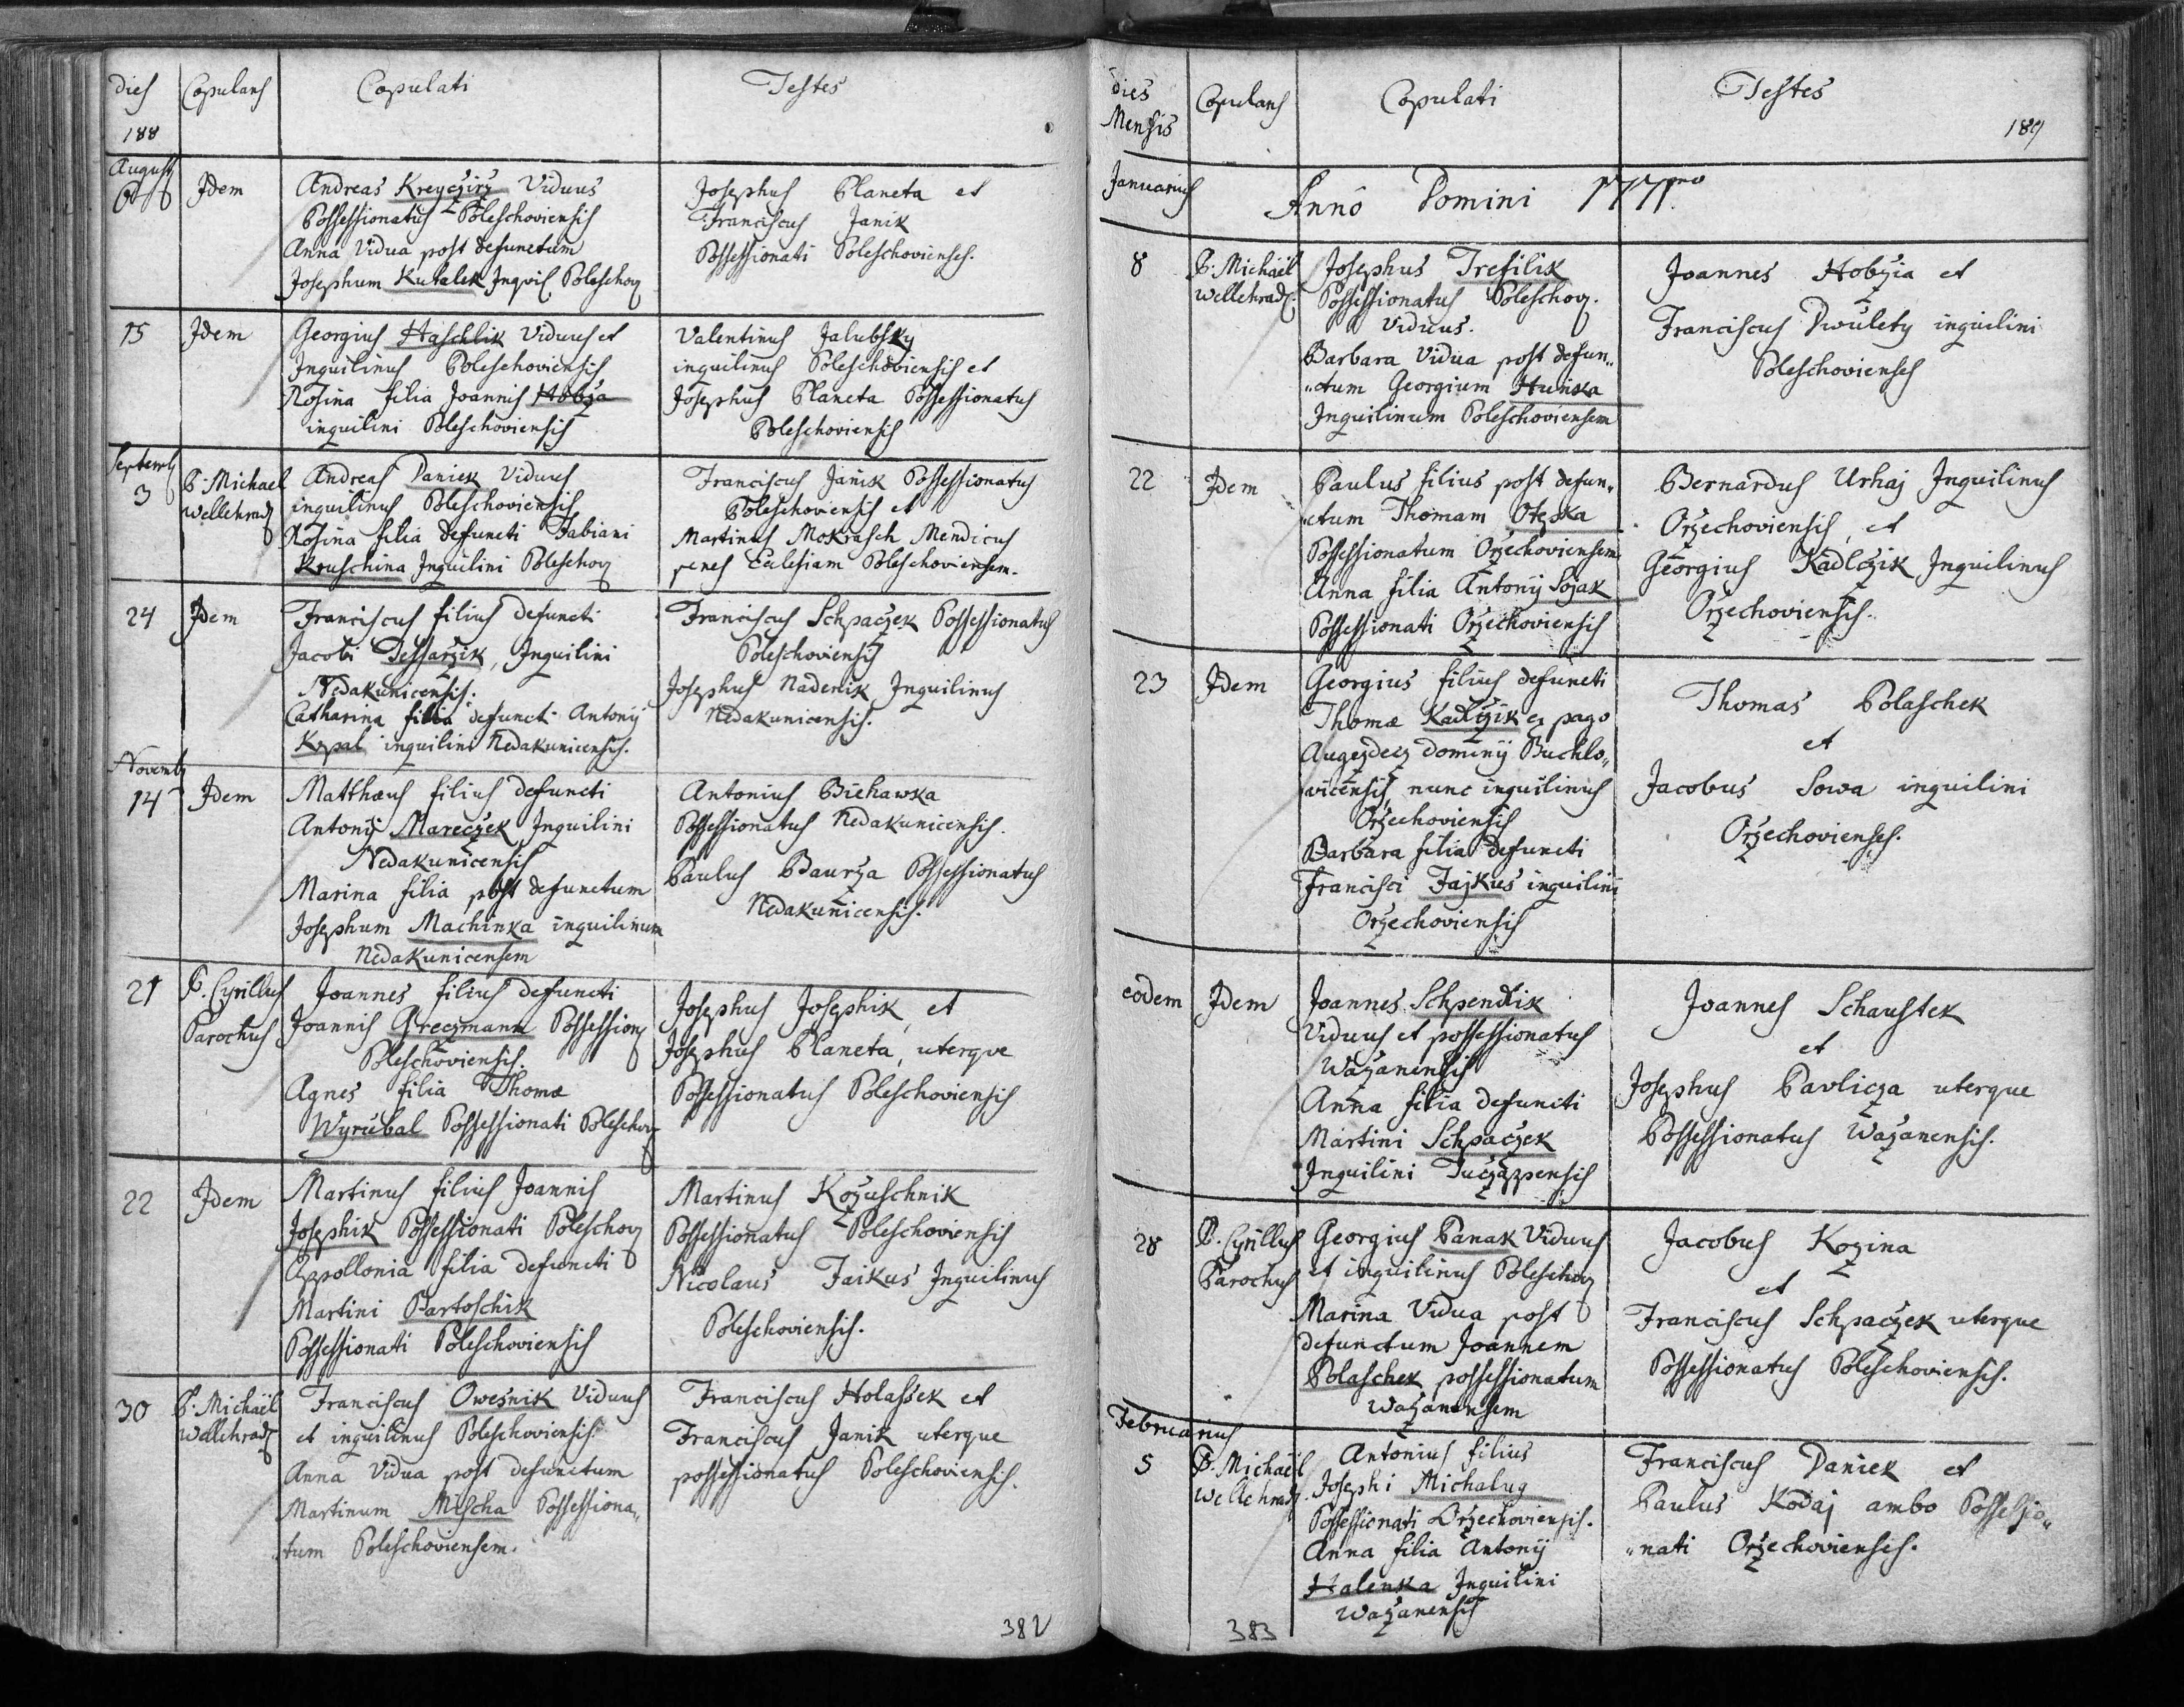 dies Copulans Copulati Testes
188
Augusti
6 Idem Andreas Kreyczirz Viduus
Possessionatus Poleschoviensis
Anna Vidua post defunctum
Josephum Kutalek Inqvil Poleschov
Josephus Planeta et
Franciscus Janik
Possessionati Poleschovienses.
15 Idem Georgius Haschlik Viduus et
Inquilinus Poleschoviensis
Rosina filia Joannis Hobza
inquilini Poleschoviensis
Valentinus Jalubsky
inquilinus Poleschoviensis et
Josephus Planeta Possessionatus
Poleschoviensis
Septemb
3 P. Michael
Wellehrad
Andreas Daniek Viduus
inquilinus Poleschoviensis
Rosina filia defuncti Fabiani
Kruschina Inquilini Poleschov
Franciscus Janik Possessionatus
Poleschoviensis et
Martinus Mokrasch Mendicus
penes Eclesiam Poleschoviensem.
24 Idem Franciscus filius defuncti
Jacobi Tessarzik, Inquilini
Nedakunicensis.
Catharina filia defuncti Antonij
Kopal inquilini Nedakunicensis.
Franciscus Schpaczek Possessionatus
Poleschoviensis
Josephus Nadenik Inquilinus
Nedakunicensis.
Novemb
14 Idem Matthæus filius defuncti
Antonij Mareczek Inquilini
Nedakunicensis
Marina filia post defunctum
Josephum Machinka inquilinum
Nedakunicensem
Antonius Biehawka
Possessionatus Nedakunicensis.
Paulus Baurza Possessionatus
Nedakunicensis.
21 P. Cyrillus
Parochus
Joannes filius defuncti
Joannis Greczmann Possession
Poleschoviensis.
Agnes filia Thomæ
Wyrubal Possessionati Poleschov
Josephus Josephik, et
Josephus Planeta, uterque
Possessionatus Poleschoviensis
22 Idem Martinus filius Joannis
Josephik Possessionati Poleschov
Appollonia filia defuncti
Martini Bartoschik
Possessionati Poleschoviensis
Martinus Kozuschnik
Possessionatus Poleschoviensis
Nicolaus Faikus Inquilinus
Poleschoviensis.
30 P. Michaël
Wellehrad
Franciscus Owesnik Viduus
et inquilinus Poleschoviensis.
Anna Vidua post defunctum
Martinum Mischa Possessiona„
„tum Poleschoviensem.
Franciscus Holassek et
Franciscus Janik uterque
possessionatus Poleschoviensis.
382
dies
Mensis Copulans Copulati Testes
189
Januarius Anno Domini 1771mo
8 P. Michaël
Wellehrad.
Josephus Trefilik
Possessionatus Poleschov.
Viduus.
Barbara Vidua post defun„
„ctum Georgium Hunka
Inquilinum Poleschoviensem
Joannes Hobzia et
Franciscus Dwulety inquilini
Poleschovienses
22 Idem Paulus filius post defun„
„ctum Thomam Otepka
Possessionatum Orzechoviensem
Anna filia Antonij Sojak
Possessionati Orzechoviensis
Bernardus Urhaj Inquilinus
Orzechoviensis, et
Georgius Kadlczik Inquilinus
Orzechoviensis.
23 Idem Georgius filius defuncti
Thomæ Kadlczik ex pago
Augezdecz Dominij Buchlo„
vicensis, nunc inquilinus
Orzechoviensis
Barbara filia defuncti
Francisci Fajkus inquilini
Orzechoviensis
Thomas Polaschek
et
Jacobus Sowa inquilini
Orzechovienses.
eodem Idem Joannes Schpendlik
Viduus et possessionatus
Wazanensis
Anna filia defuncti
Martini Schpaczek
Inquilini Tuczappensis
Joannes Schaustek
et
Josephus Pavlicza uterque
Possessionatus Wazanensis.
28 P. Cyrillus
Parochus
Georgius Panak Viduus
et inquilinus Poleschov
Marina Vidua post
defunctum Joannem
Polaschek possessionatum
Wazanensem
Jacobus Kozina
et
Franciscus Schpaczek uterque
Possessionatus Poleschoviensis.
Februarius
5 P. Michaël
Wellehrad.
Antonius filius
Josephi Michalug
Possessionati Orzechoviensis.
Anna filia Antonij
Halenka Inquilini
Wazanensis
Franciscus Daniek et
Paulus Kodaj ambo Possessio„
„nati Orzechoviensis.
383